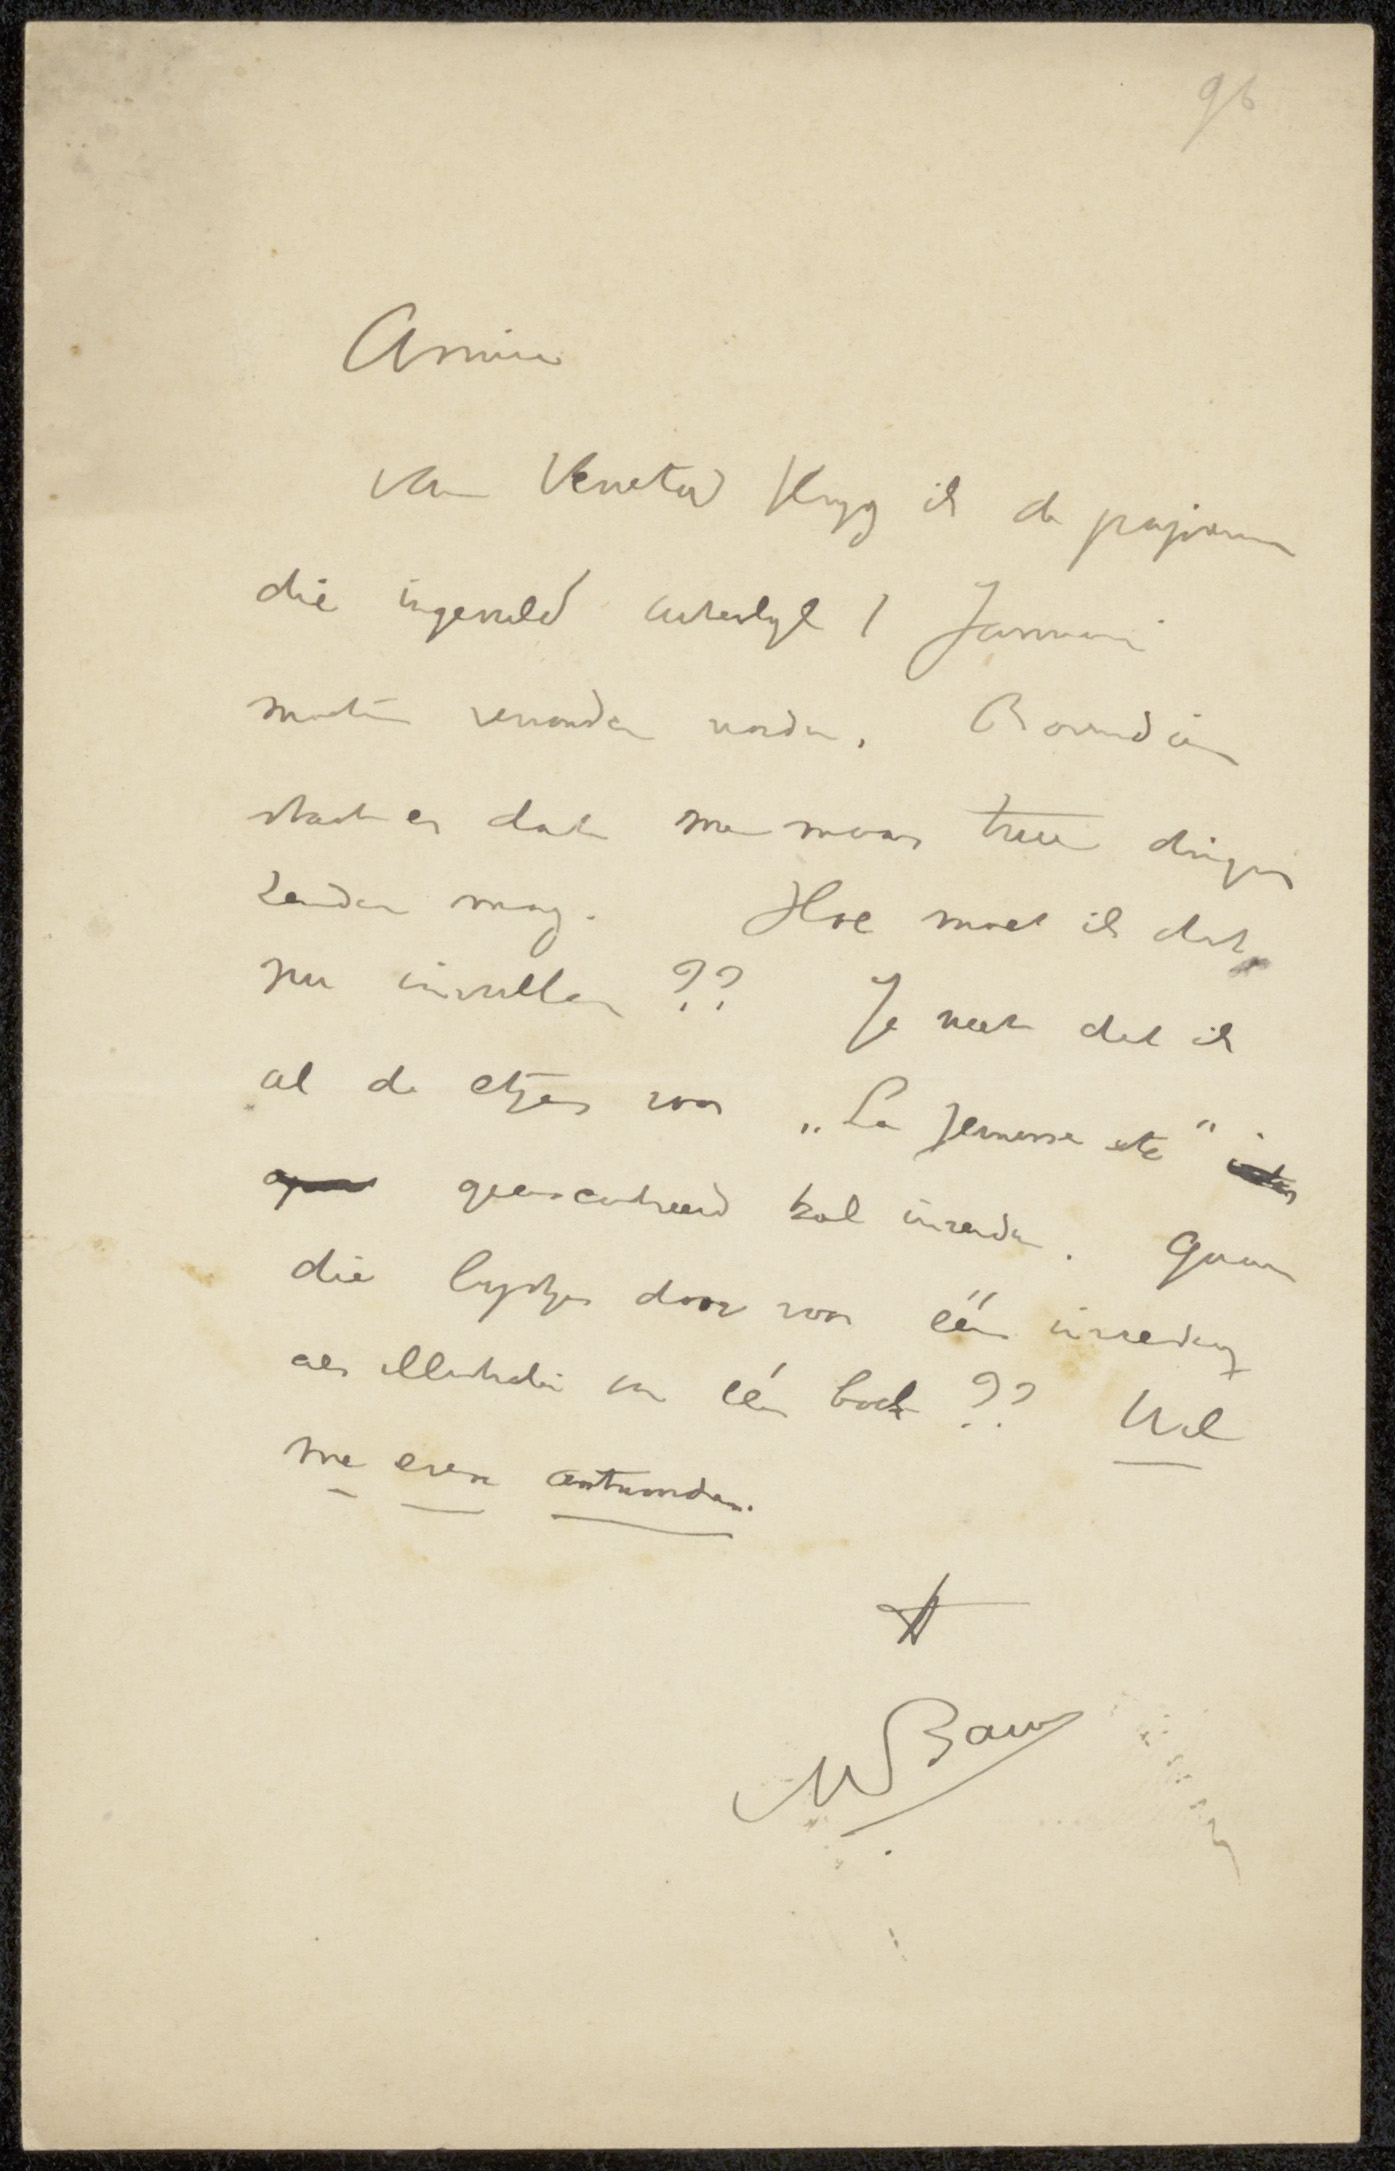 96
Amice
Van Venetië kryg ik de papieren
die ingevuld uiterlyk 1 Januari
moeten verzonden worden. Bovendien
staat er dat men maar twee dingen
zenden mag. Hoe moet ik dat
nu invullen ?? Je weet dat ik
al de etsjes voor „La jeunesse etc"
geencadreerd zal inzenden. Gaan
die lystjes door voor één inzending
als illustratie van één boek ?? Wil
me even antwoorden.
tt
MBauer